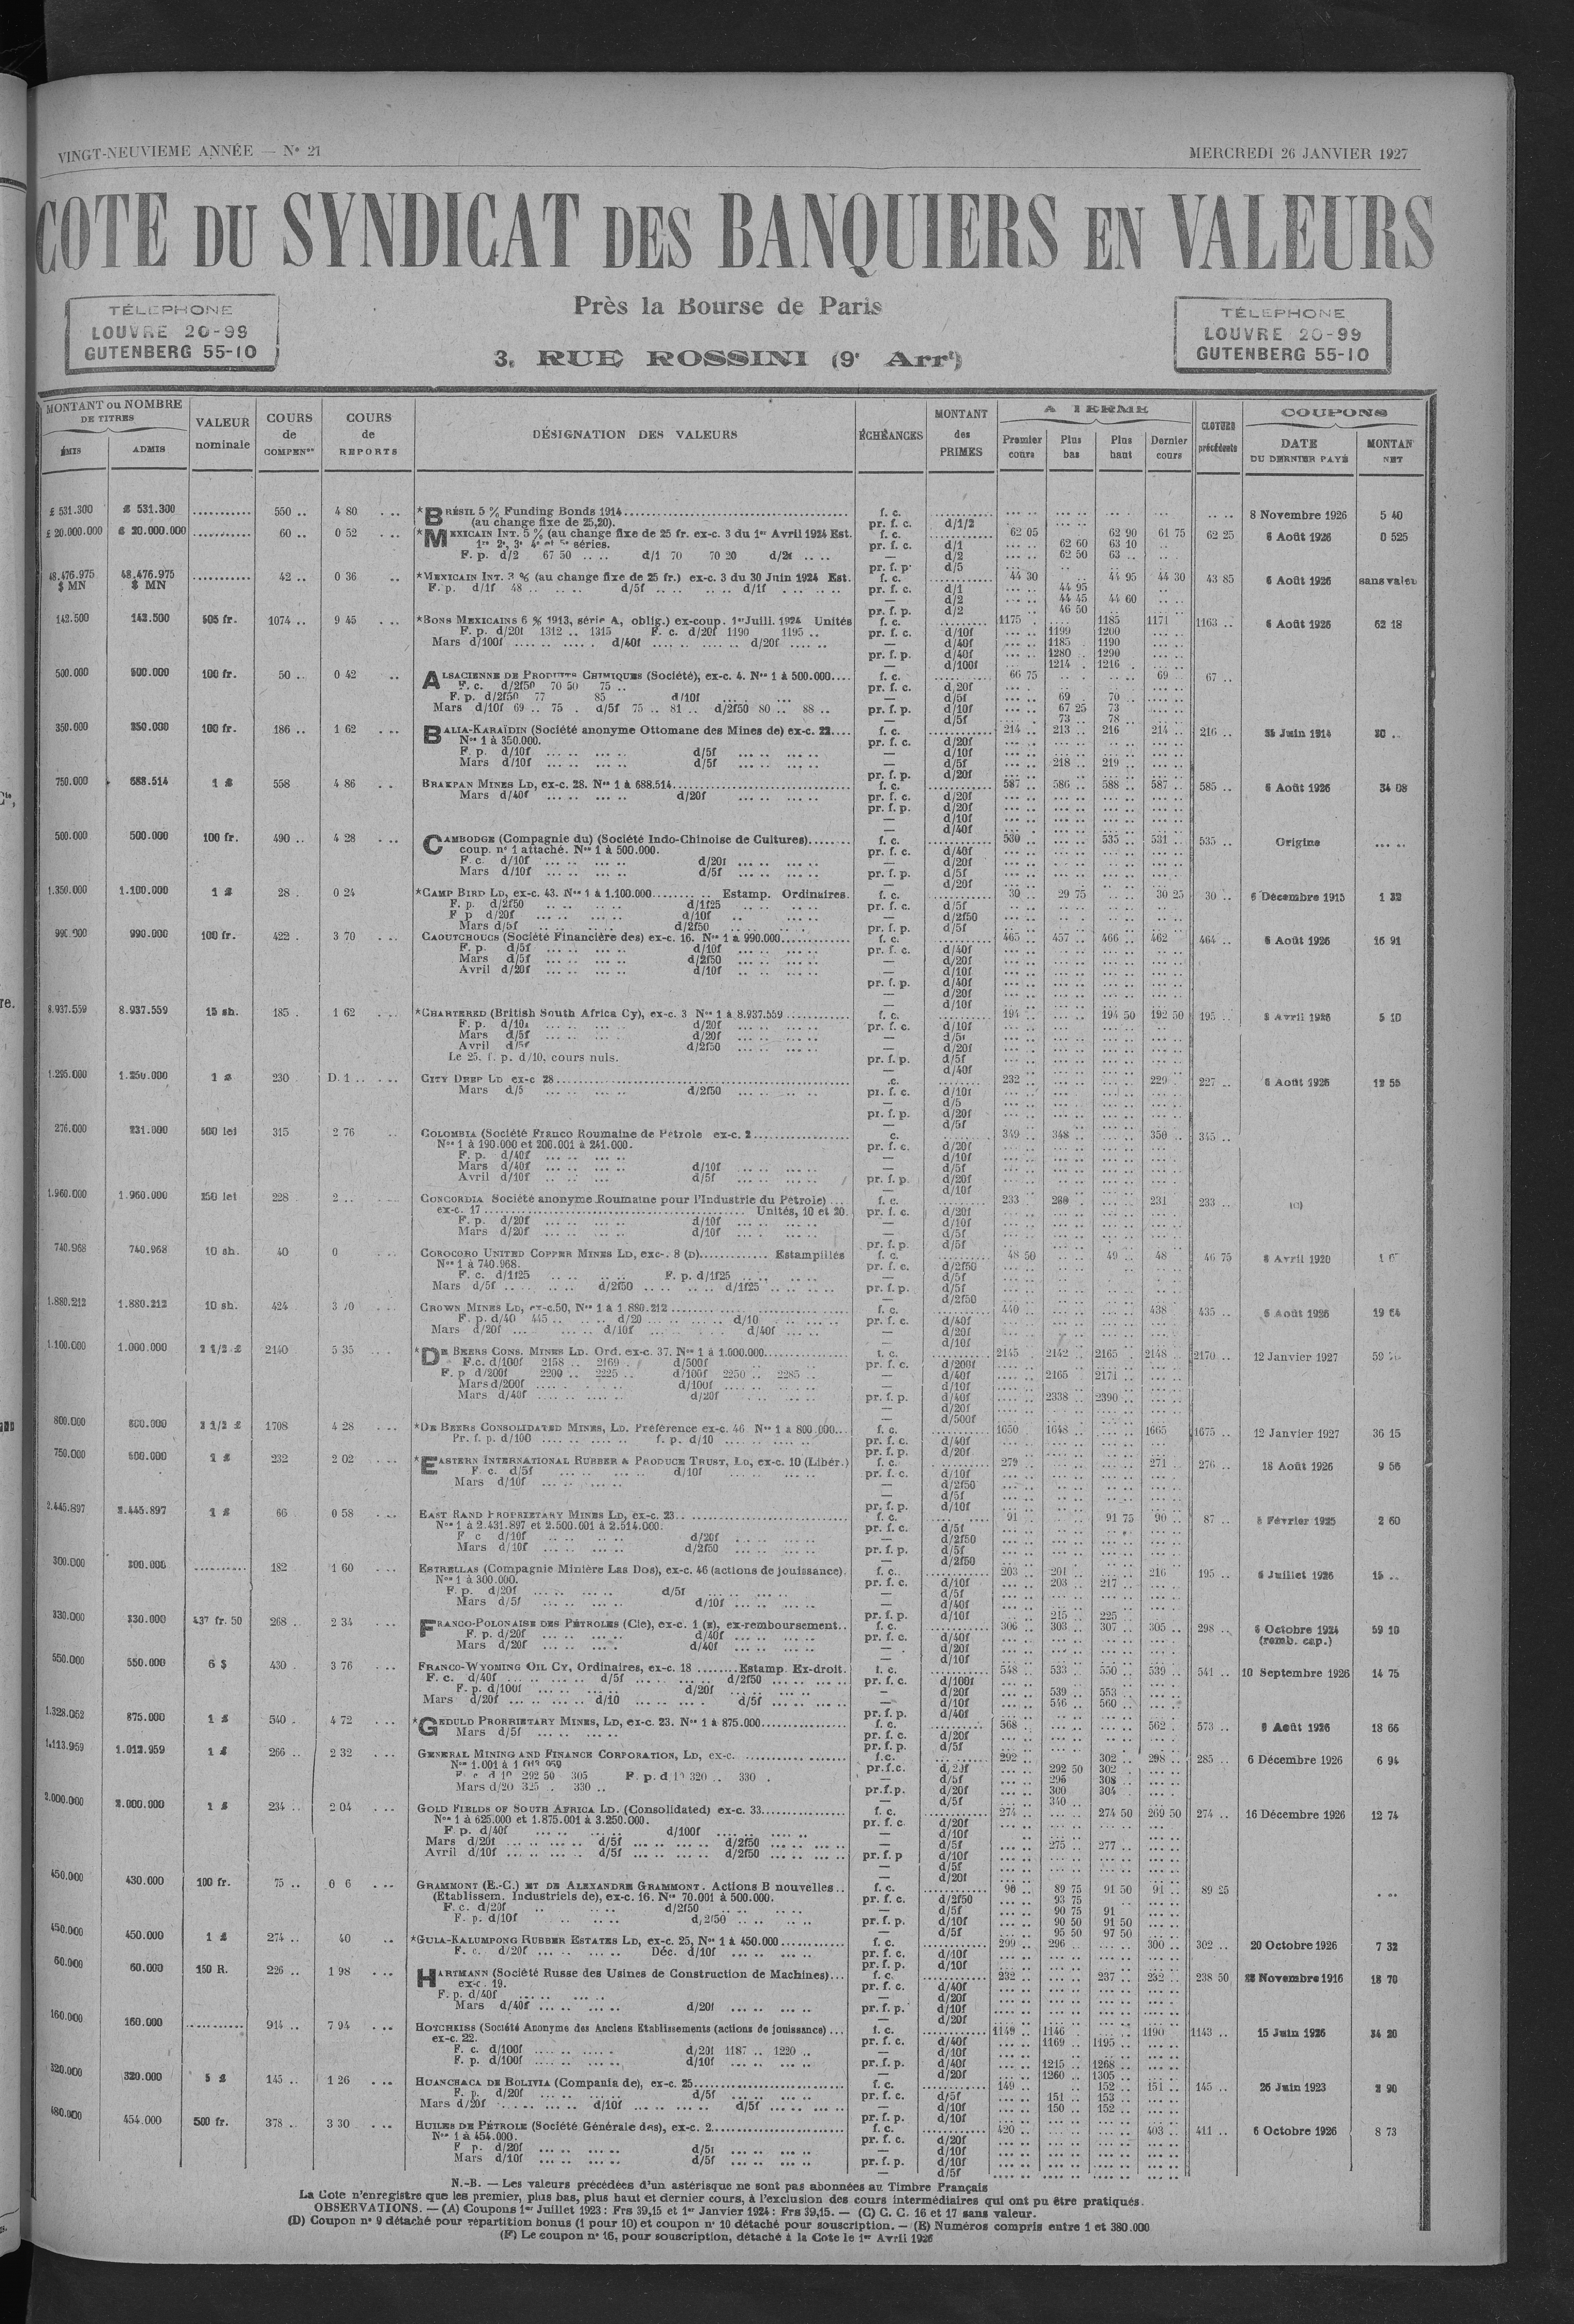 VINGT-NEUVIEME ANNÉE — N° 21
MERCREDI 26 JANVIER 1927
COTE DU SYNDICAT DES BANQUIERS EN VALEURS
Près la Bourse de Paris
3, RUE ROSSINI (9e Arrt)
TÉLEPHONE
LOUVRE 20-99
GUTENBERG 55-10
TÉLEPHONE
LOUVRE 20-99
GUTENBERG 55-10
MONTANT ou NOMBRE DE TITRES
ÉMIS ADMIS
VALEUR nominale
COURS de COMPENon
COURS de REPORTS
DÉSIGNATION DES VALEURS
ÉCHÉANCES
MONTANT des PRIMES
A TERME
Premier cours Plus bas Plus haut Dernier cours
CLOTURE précédente
COUPONS
DATE DU DERNIER PAYÉ MONTAN NET
£ 531.300 £ 531.300 ........... 550 .. 4 80 *BRÉSIL 5 % Funding Bonds 1914 f. c. 8 Novembre 1926 5 40
(au change fixe de 25,20). pr. f. c. d/1/2
£ 20.000.000 £ 20.000.000 ........... 60 .. 0 52 *MEXICAIN INT. 5 % (au change fixe de 25 fr. ex-c. 3 du 1er Avril 1924 Est. f. c. 62 05 62 90 61 75 62 25 6 Août 1926 0 525
1re 2e, 3e 4e et 5e séries. pr. f. c. d/1 62 60 63 10
F. p. d/2 67 50 .. .. d/1 70 70 20 d/2f .. .. — d/2 62 50 63 ..
pr. f. p. d/5
48.476.975 $ MN 48.476.975 $ MN ........... 42 .. 0 36 *MEXICAIN INT. 3 % (au change fixe de 25 fr.) ex-c. 3 du 30 Juin 1924 Est. f. c. 44 30 44 95 44 30 43 85 6 Août 1926 sans valeu
F. p. d/1f 48 .. d/5f .. .. d/1f .. .. pr. f. c. d/1 44 95
— d/2 44 45 44 60
pr. f. p. d/2 46 50
142.500 142.500 505 fr. 1074 .. 9 45 *BONS MEXICAINS 6 % 1913, série A, oblig.) ex-coup. 1er Juill. 1924 Unités f. c. 1175 1185 1171 1163 .. 6 Août 1926 62 18
F. p. d/20f 1312 .. 1315 F. c. d/20f 1190 1195 .. pr. f. c. d/10f 1199 1200
Mars d/100f .... d/40f .... d/20f .... — d/40f 1185 1190
pr. f. p. d/40f 1280 1290
— d/100f 1214 1216
500.000 500.000 100 fr. 50 .. 0 42 ALSACIENNE DE PRODUITS CHIMIQUES (Société), ex-c. 4. Nos 1 à 500.000 f. c. 66 75 69 .. 67 ..
F. c. d/2f50 70 50 75 .. pr. f. c. d/20f
F. p. d/2f50 77 85 d/10f — d/5f 69 70
Mars d/10f 69 .. 75 . d/5f 75 .. 81 .. d/2f50 80 .. 88 .. pr. f. p. d/10f 67 25 73
— d/5f 73 .. 78 ..
350.000 350.000 100 fr. 186 .. 1 62 BALIA-KARAÏDIN (Société anonyme Ottomane des Mines de) ex-c. 22 f. c. 214 .. 213 .. 216 214 .. 216 .. Juin 1914 20 ..
Nos 1 à 350.000. pr. f. c. d/20f
F. p. d/10f d/5f — d/10f
Mars d/10f d/5f — d/5f 218 .. 219 ..
pr. f. p. d/20f
750.000 688.514 1 £ 558 4 86 BRAKPAN MINES LD, ex-c. 28. Nos 1 à 688.514 f. c. 587 .. 586 .. 588 .. 587 .. 585 .. 6 Août 1926 34 08
Mars d/40f d/20f pr. f. c. d/20f
pr. f. p. d/20f
— d/10f
— d/40f
500.000 500.000 100 fr. 490 .. 4 28 CAMBODGE (Compagnie du) (Société Indo-Chinoise de Cultures) f. c. 530 535 .. 531 .. 535 .. Origine
coup. n° 1 attaché. Nos 1 à 500.000. pr. f. c. d/40f
F. c. d/10f d/20f — d/20f
Mars d/10f d/5f pr. f. p. d/5f
— d/20f
1.350.000 1.100.000 1 £ 28 . 0 24 *CAMP BIRD LD, ex-c. 43. Nos 1 à 1.100.000 Estamp. Ordinaires. f. c. 30 .. 29 75 30 25 30 .. 6 Décembre 1915 1 32
F. p. d/2f50 d/1f25 pr. f. c. d/5f
F p d/20f d/10f — d/2f50
Mars d/5f d/2f50 pr. f. p. d/5f
990.000 990.000 100 fr. 422 . 3 70 CAOUTCHOUCS (Société Financière des) ex-c. 16. Nos 1 à 990.000 f. c. 465 .. 457 .. 466 .. 462 464 .. 6 Août 1926 16 91
F. p. d/5f d/10f pr. f. c. d/40f
Mars d/5f d/2f50 — d/20f
Avril d/20f d/10f — d/10f
pr. f. p. d/40f
— d/20f
— d/10f
8.937.559 8.937.559 15 sh. 185 . 1 62 *CHARTERED (British South Africa Cy), ex-c. 3 Nos 1 à 8.937.559 f. c. 194 .. 194 50 192 50 195 .. Avril 1926 5 10
F. p. d/10f d/20f pr. f. c. d/10f
Mars d/5f d/20f — d/5f
Avril d/5f d/2f50 — d/20f
Le 25. f. p. d/10, cours nuls. pr. f. p. d/5f
— d/40f
1.295.000 1.250.000 1 £ 230 D. 1 .. CITY DEEP LD ex-c 28 .c. 232 .. 229 .. 227 .. 6 Août 1926 12 55
Mars d/5 d/2f50 pr. f. c. d/10f
— d/5
pr. f. p. d/20f
— d/5f
276.000 231.000 500 lei 315 2 76 COLOMBIA (Société Franco Roumaine de Pétrole ex-c. 2 c. 349 .. 348 .. 350 .. 345 ..
Nos 1 à 190.000 et 200.001 à 241.000. pr. f. c. d/20f
F. p. d/40f — d/10f
Mars d/40f d/10f — d/5f
Avril d/10f d/5f pr. f. p. d/20f
— d/10f
1.960.000 1.960.000 250 lei 228 2 .. CONCORDIA Société anonyme Roumaine pour l'Industrie du Pétrole) f. c. 233 .. 231 .. 233 .. (C)
ex-c. 17 Unités, 10 et 20. pr. f. c. d/20f
F. p. d/20f d/10f — d/10f
Mars d/20f d/10f — d/5f
pr. f. p. d/5f
740.968 740.968 10 sh. 40 0 COROCORO UNITED COPPER MINES LD, exc-. 8 (D) Estampillés f. c. 48 50 49 .. 48 46 75 6 Avril 1920
Nos 1 à 740.968. pr. f. c. d/2f50
F. c. d/1f25 F. p. d/1f25 — d/5f
Mars d/5f d/2f50 d/1f25 pr. f. p. d/5f
— d/2f50
1.880.212 1.880.212 10 sh. 424 3 70 CROWN MINES LD, ex-c.50, Nos 1 à 1.880.212 f. c. 440 438 435 .. 6 Août 1926 19 64
F. p. d/40 445 .. d/20 d/10 pr. f. c. d/40f
Mars d/20f d/10f d/40f — d/20f
— d/10f
1.100.000 1.000.000 2 1/2 £ 2140 5 35 *DE BEERS CONS. MINES LD. Ord. ex-c. 37. Nos 1 à 1.000.000 f. c. 2145 2142 .. 2165 2148 .. 2170 .. 12 Janvier 1927 59
F.c. d/100f 2158 .. 2169 . d/500f pr. f. c. d/200f
F. p d/200f 2200 .. 2225 .. d/100f 2250 .. 2285 .. — d/40f 2165 2171 ..
Mars d/200f d/100f — d/10f
Mars d/40f d/20f pr. f. p. d/40f 2338 .. 2390 ..
— d/20f
— d/500f
800.000 800.000 2 1/2 £ 1708 4 28 *DE BEERS CONSOLIDATED MINES, LD. Préférence ex-c. 46 Nos 1 à 800.000 f. c. 1650 1648 .. 1665 1675 .. 12 Janvier 1927 36 15
Pr. f. p. d/100 f. p. d/10 pr. f. c. d/40f
pr. f. p. d/20f
750.000 500.000 1 £ 232 2 02 *EASTERN INTERNATIONAL RUBBER & PRODUCE TRUST, LD, ex-c. 10 (Libér.) f. c. 279 271 276 .. 18 Août 1926 9 56
F. c. d/5f d/10f pr. f. c. d/10f
Mars d/10f — d/2f50
— d/5f
pr. f. p. d/10f
2.445.897 2.445.897 1 £ 66 0 58 EAST RAND PROPRIETARY MINES LD, ex-c. 23 f. c. 91 .. 91 75 90 .. 87 .. Février 1925 2 60
Nos 1 à 2.431.897 et 2.500.001 à 2.514.000. pr. f. c. d/5f
F c d/10f d/20f — d/2f50
Mars d/10f d/2f50 pr. f. p. d/5f
— d/2f50
300.000 300.000 .......... 182 1 60 ESTRELLAS (Compagnie Minière Las Dos), ex-c. 46 (actions de jouissance). f. c. 203 .. 201 .. 216 195 .. 6 Juillet 1926 15 ..
Nos 1 à 300.000. pr. f. c. d/10f 203 .. 217 ..
F. p. d/20f d/5f — d/5f
Mars d/5f d/10f — d/40f
pr. f. p. d/10f 215 .. 225
330.000 330.000 437 fr. 50 268 . 2 34 FRANCO-POLONAISE DES PÉTROLES (Cie), ex-c. 1 (E), ex-remboursement f. c. 306 303 .. 307 305 .. 298 .. 6 Octobre 1924 59 10
F. p. d/20f d/40f pr. f. c. d/40f (remb. cap.)
Mars d/20f d/40f — d/20f
— d/10f
550.000 550.000 6 $ 430 . 3 76 FRANCO-WYOMING OIL CY, Ordinaires, ex-c. 18 Estamp. Ex-droit. f. c. 548 533 .. 550 539 .. 541 .. 10 Septembre 1926 14 75
F. c. d/40f d/5f d/2f50 pr. f. c. d/100f
F. p. d/100f d/20f — d/20f 539 .. 553 ..
Mars d/20f d/10 d/5f — d/10f 546 .. 560 ..
pr. f. p. d/40f
1.328.052 875.000 1 £ 540 . 4 72 *GEDULD PRORRIETARY MINES, LD, ex-c. 23. Nos 1 à 875.000 f. c. 568 562 . 573 .. 6 Août 1926 18 66
Mars d/5f pr. f. c. d/20f
pr. f. p. d/5f
1.113.959 1.012.959 1 £ 266 .. 2 32 GENERAL MINING AND FINANCE CORPORATION, LD, ex-c. f.c. 292 .. 302 .. 298 .. 285 .. 6 Décembre 1926 6 94
Nos 1.001 à 1 013 959 pr.f.c. d/20f 292 50 302
F. c d 10 292 50 305 F. p. d 10 320 .. 330 . — d/5f 295 308 ..
Mars d/20 325 .. 330 .. pr.f.p. d/20f 300 304
— d/5f 340 ..
2.000.000 2.000.000 1 £ 234 .. 2 04 GOLD FIELDS OF SOUTH AFRICA LD. (Consolidated) ex-c. 33 f. c. 274 .. 274 50 269 50 274 .. 16 Décembre 1926 12 74
Nos 1 à 625.000 et 1.875.001 à 3.250.000. pr. f. c. d/20f
F. p. d/40f d/100f — d/10f
Mars d/20f d/5f d/2f50 — d/5f 275 .. 277 ..
Avril d/10f d/5f d/2f50 pr. f. p d/10f
— d/5f
— d/20f
450.000 430.000 100 fr. 75 .. 0 6 GRAMMONT (E.-C.) ET DE ALEXANDRE GRAMMONT. Actions B nouvelles f. c. 90 .. 89 75 91 50 91 .. 89 25
(Etablissem. Industriels de), ex-c. 16. Nos 70.001 à 500.000. pr. f. c. d/2f50 93 75
F. c. d/20f d/2f50 — d/5f 90 75 91
F. p. d/10f d/2f50 pr. f. p. d/10f 90 50 91 50
— d/5f 95 50 97 50
450.000 450.000 1 £ 274 .. 40 *GULA-KALUMPONG RUBBER ESTATES LD, ex-c. 25, Nos 1 à 450.000 f. c. 299 .. 296 .. 300 .. 302 .. 20 Octobre 1926 7 32
F. c. d/20f Déc. d/10f pr. f. c. d/10f
pr. f. p. d/10f
60.000 60.000 150 R. 226 .. 1 98 HARTMANN (Société Russe des Usines de Construction de Machines) f. c. 232 237 .. 232 .. 238 50 22 Novembre 1916 18 70
ex-c. 19. pr. f. c. d/40f
F. p. d/40f — d/20f
Mars d/40f d/20f pr. f. p. d/10f
— d/20f
160.000 160.000 ........... 914 .. 7 94 HOTCHKISS (Société Anonyme des Anciens Etablissements (actions de jouissance) f. c. 1149 1146 1190 1143 .. 15 Juin 1926 34 20
ex-c. 22. pr. f. c. d/40f 1169 1195
F. c. d/100f d/20f 1187 .. 1220 .. — d/10f
F. p. d/100f d/10f pr. f. p. d/40f 1215 1268
— d/20f 1260 1305
320.000 320.000 5 £ 145 .. 1 26 HUANCHACA DE BOLIVIA (Compania de), ex-c. 25 f. c. 149 152 .. 151 .. 145 .. 26 Juin 1923 2 90
F. p. d/20f d/5f pr. f. c. d/5f 151 .. 153 ..
Mars d/20f d/10f d/5f — d/10f 150 .. 152 ..
pr. f. p. d/10f
480.000 454.000 500 fr. 378 .. 3 30 HUILES DE PÉTROLE (Société Générale des), ex-c. 2 f. c. 420 403 .. 411 .. 6 Octobre 1926 8 73
Nos 1 à 454.000. pr. f. c. d/20f
F p. d/20f d/5f — d/10f
Mars d/10f d/5f pr. f. p. d/10f
— d/5f
N.-B. — Les valeurs précédées d'un astérisque ne sont pas abonnées au Timbre Français
La Cote n'enregistre que les premier, plus bas, plus haut et dernier cours, à l'exclusion des cours intermédiaires qui ont pu être pratiqués.
OBSERVATIONS. — (A) Coupons 1er Juillet 1923 : Frs 39,15 et 1er Janvier 1924 : Frs 39,15. — (C) C. C. 16 et 17 sans valeur.
(D) Coupon n° 9 détaché pour répartition bonus (1 pour 10) et coupon n° 10 détaché pour souscription. — (E) Numéros compris entre 1 et 380.000
(F) Le coupon n° 16, pour souscription, détaché à la Cote le 1er Avril 1926